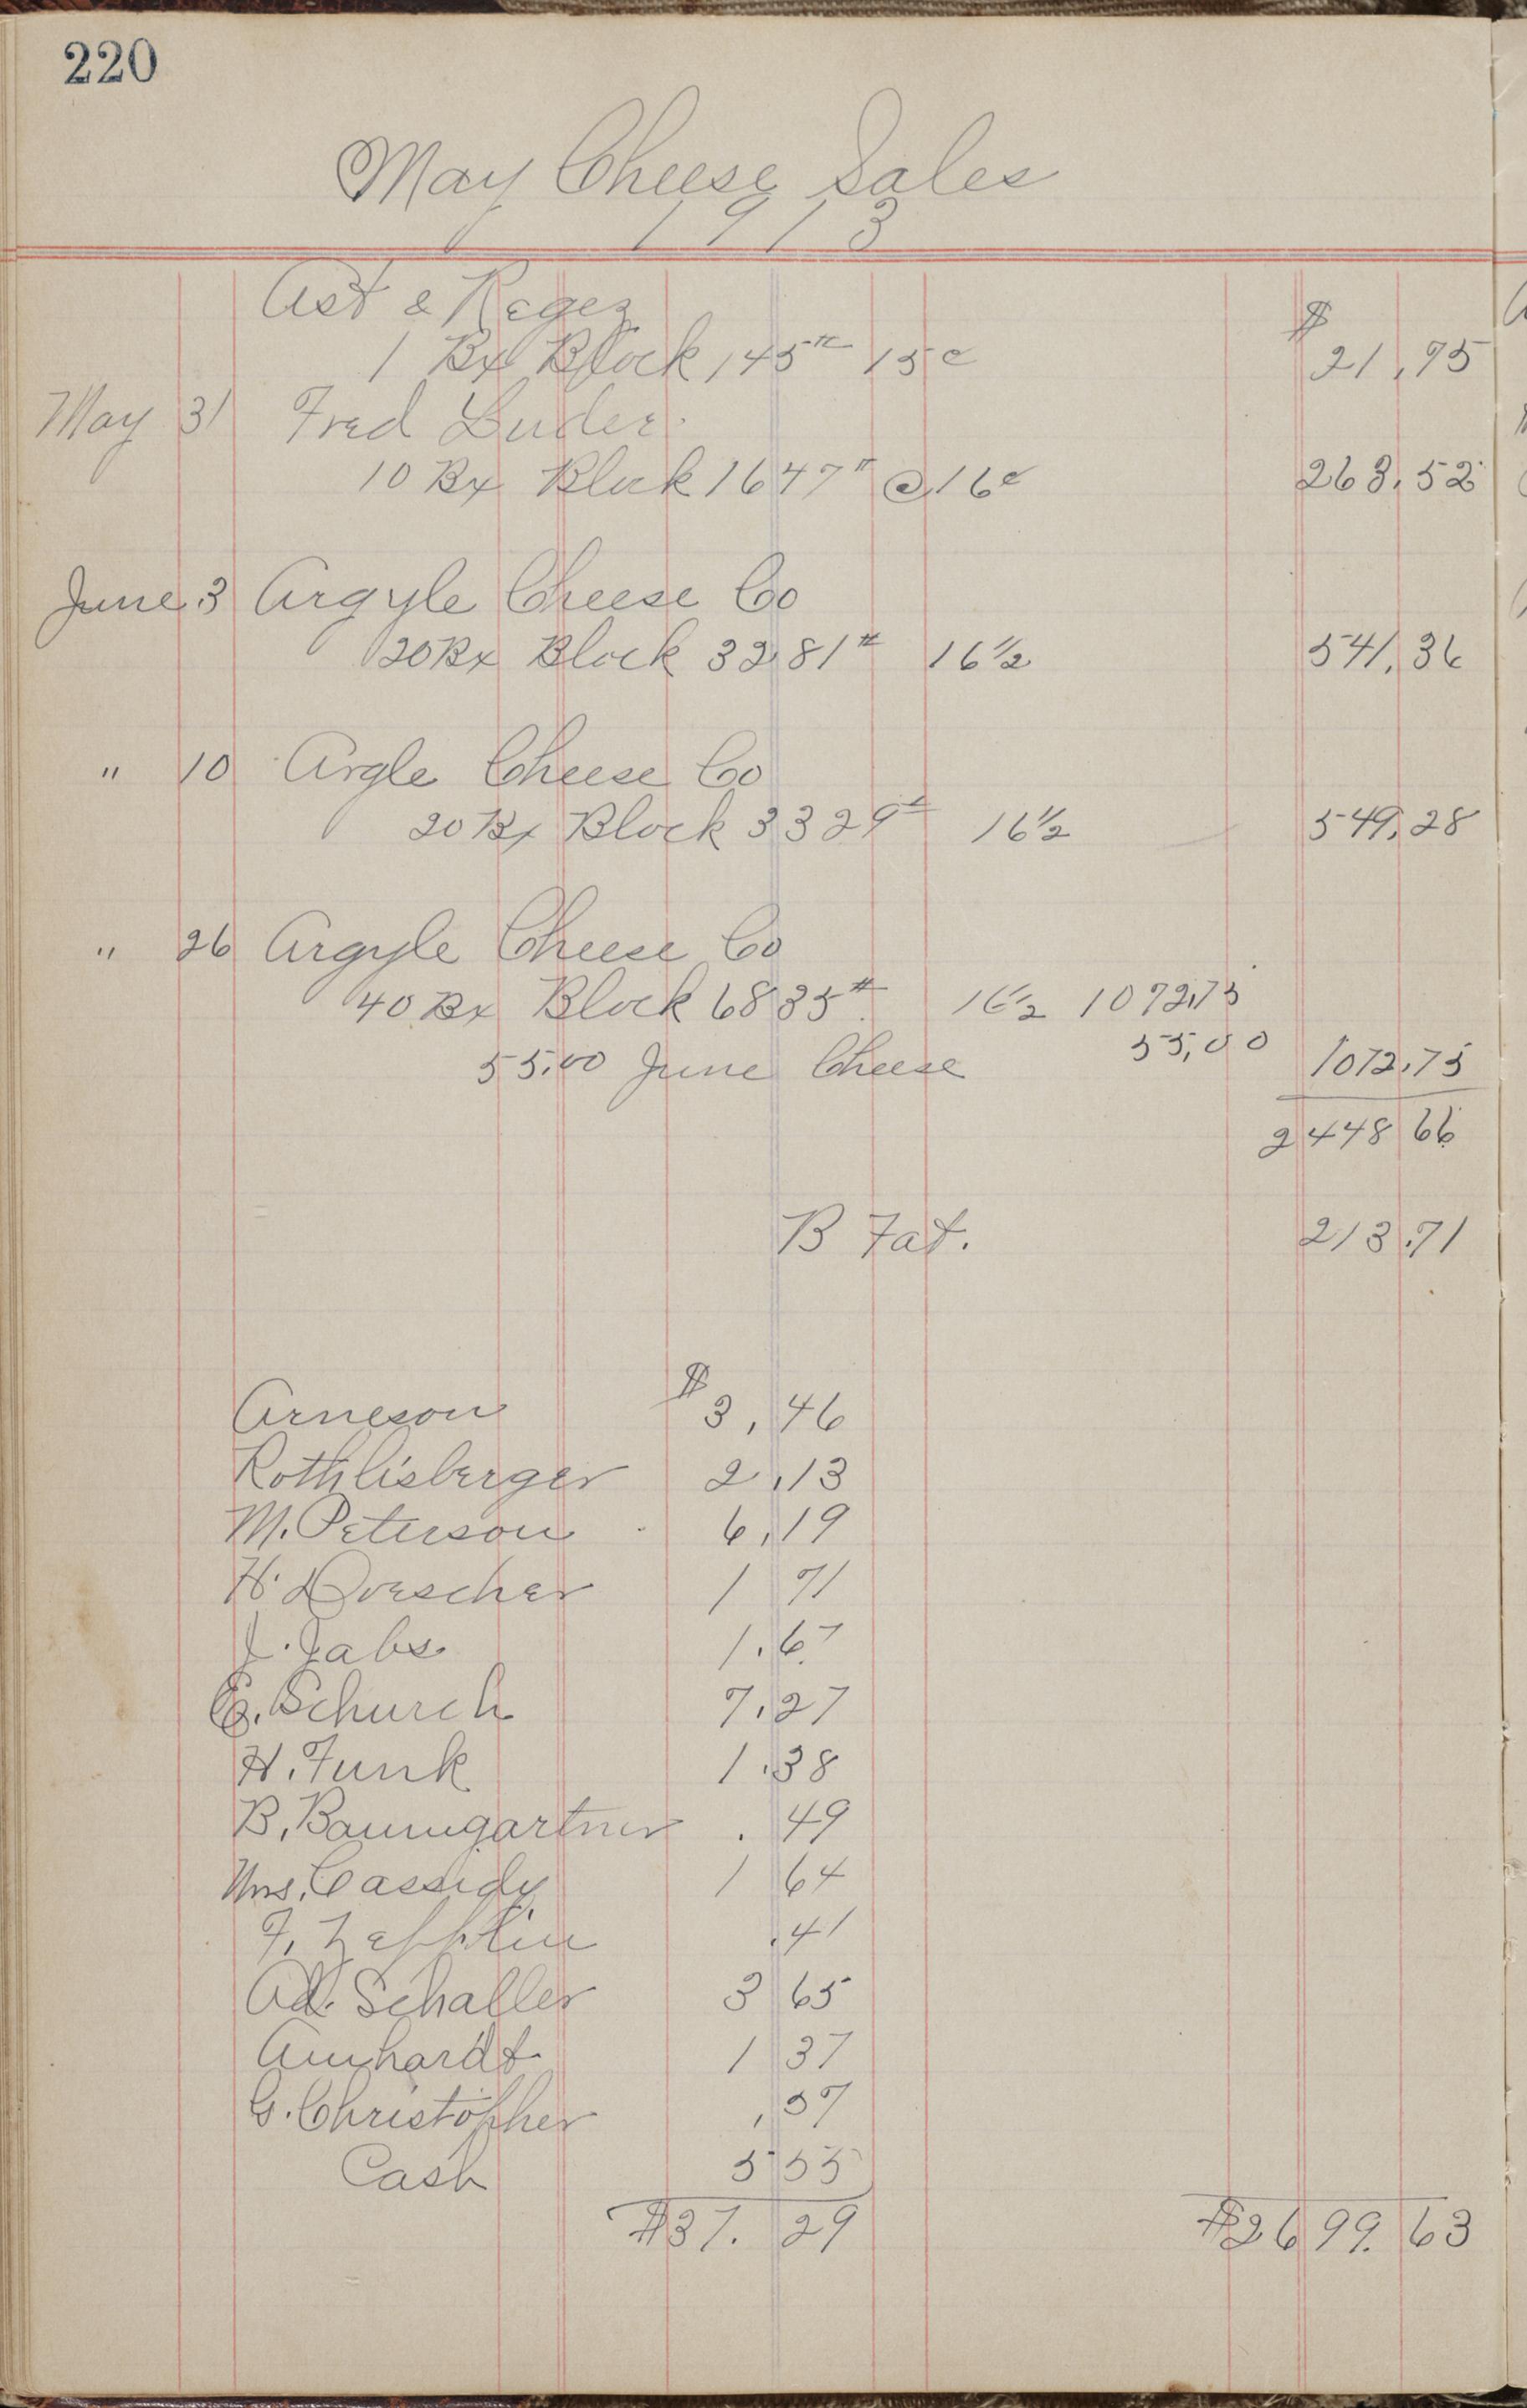 220
May Cheese Sales
1913
Ast & Regez
1 Bx Block 145# 15c $ 21,75
May 31 Fred Luder.
10 Bx Block 1647# @ 16c 263.52
June 3 Argyle Cheese Co
20 Bx Block 3281# 16½ 541,36
" 10 Argle Cheese Co
20 Bx Block 3329# 16½ 549,28
" 26 Argyle Cheese Co
40 Bx Block 6835# 16½ 1072,75
55,00 June Cheese 55,00 1072,75
2448 66
B Fat. 213.71
Arneson $ 3,46
Rothlisberger 2,13
M. Peterson 6,19
H. Doescher 1 71
J. Jabs 1.67
E. Schurch 7.27
H. Funk 1.38
B. Baumgartner .49
Mrs. Cassidy 1 64
F. Zepplin .41
Ad. Schaller 3 65
Amhardt 1 37
G. Christopher ,37
Cash 5 55
$37. 29 $2699.63